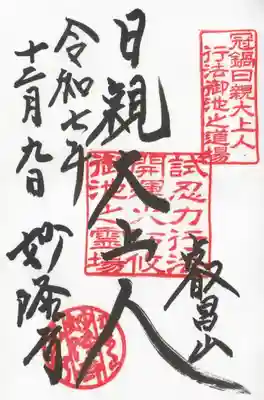 冠鍋日親大上人
行法御池之道場
日親大上人
試忍力行法
開運火行伩
御池之霊場
叡昌山
令和七年
十二月九日
妙隆寺